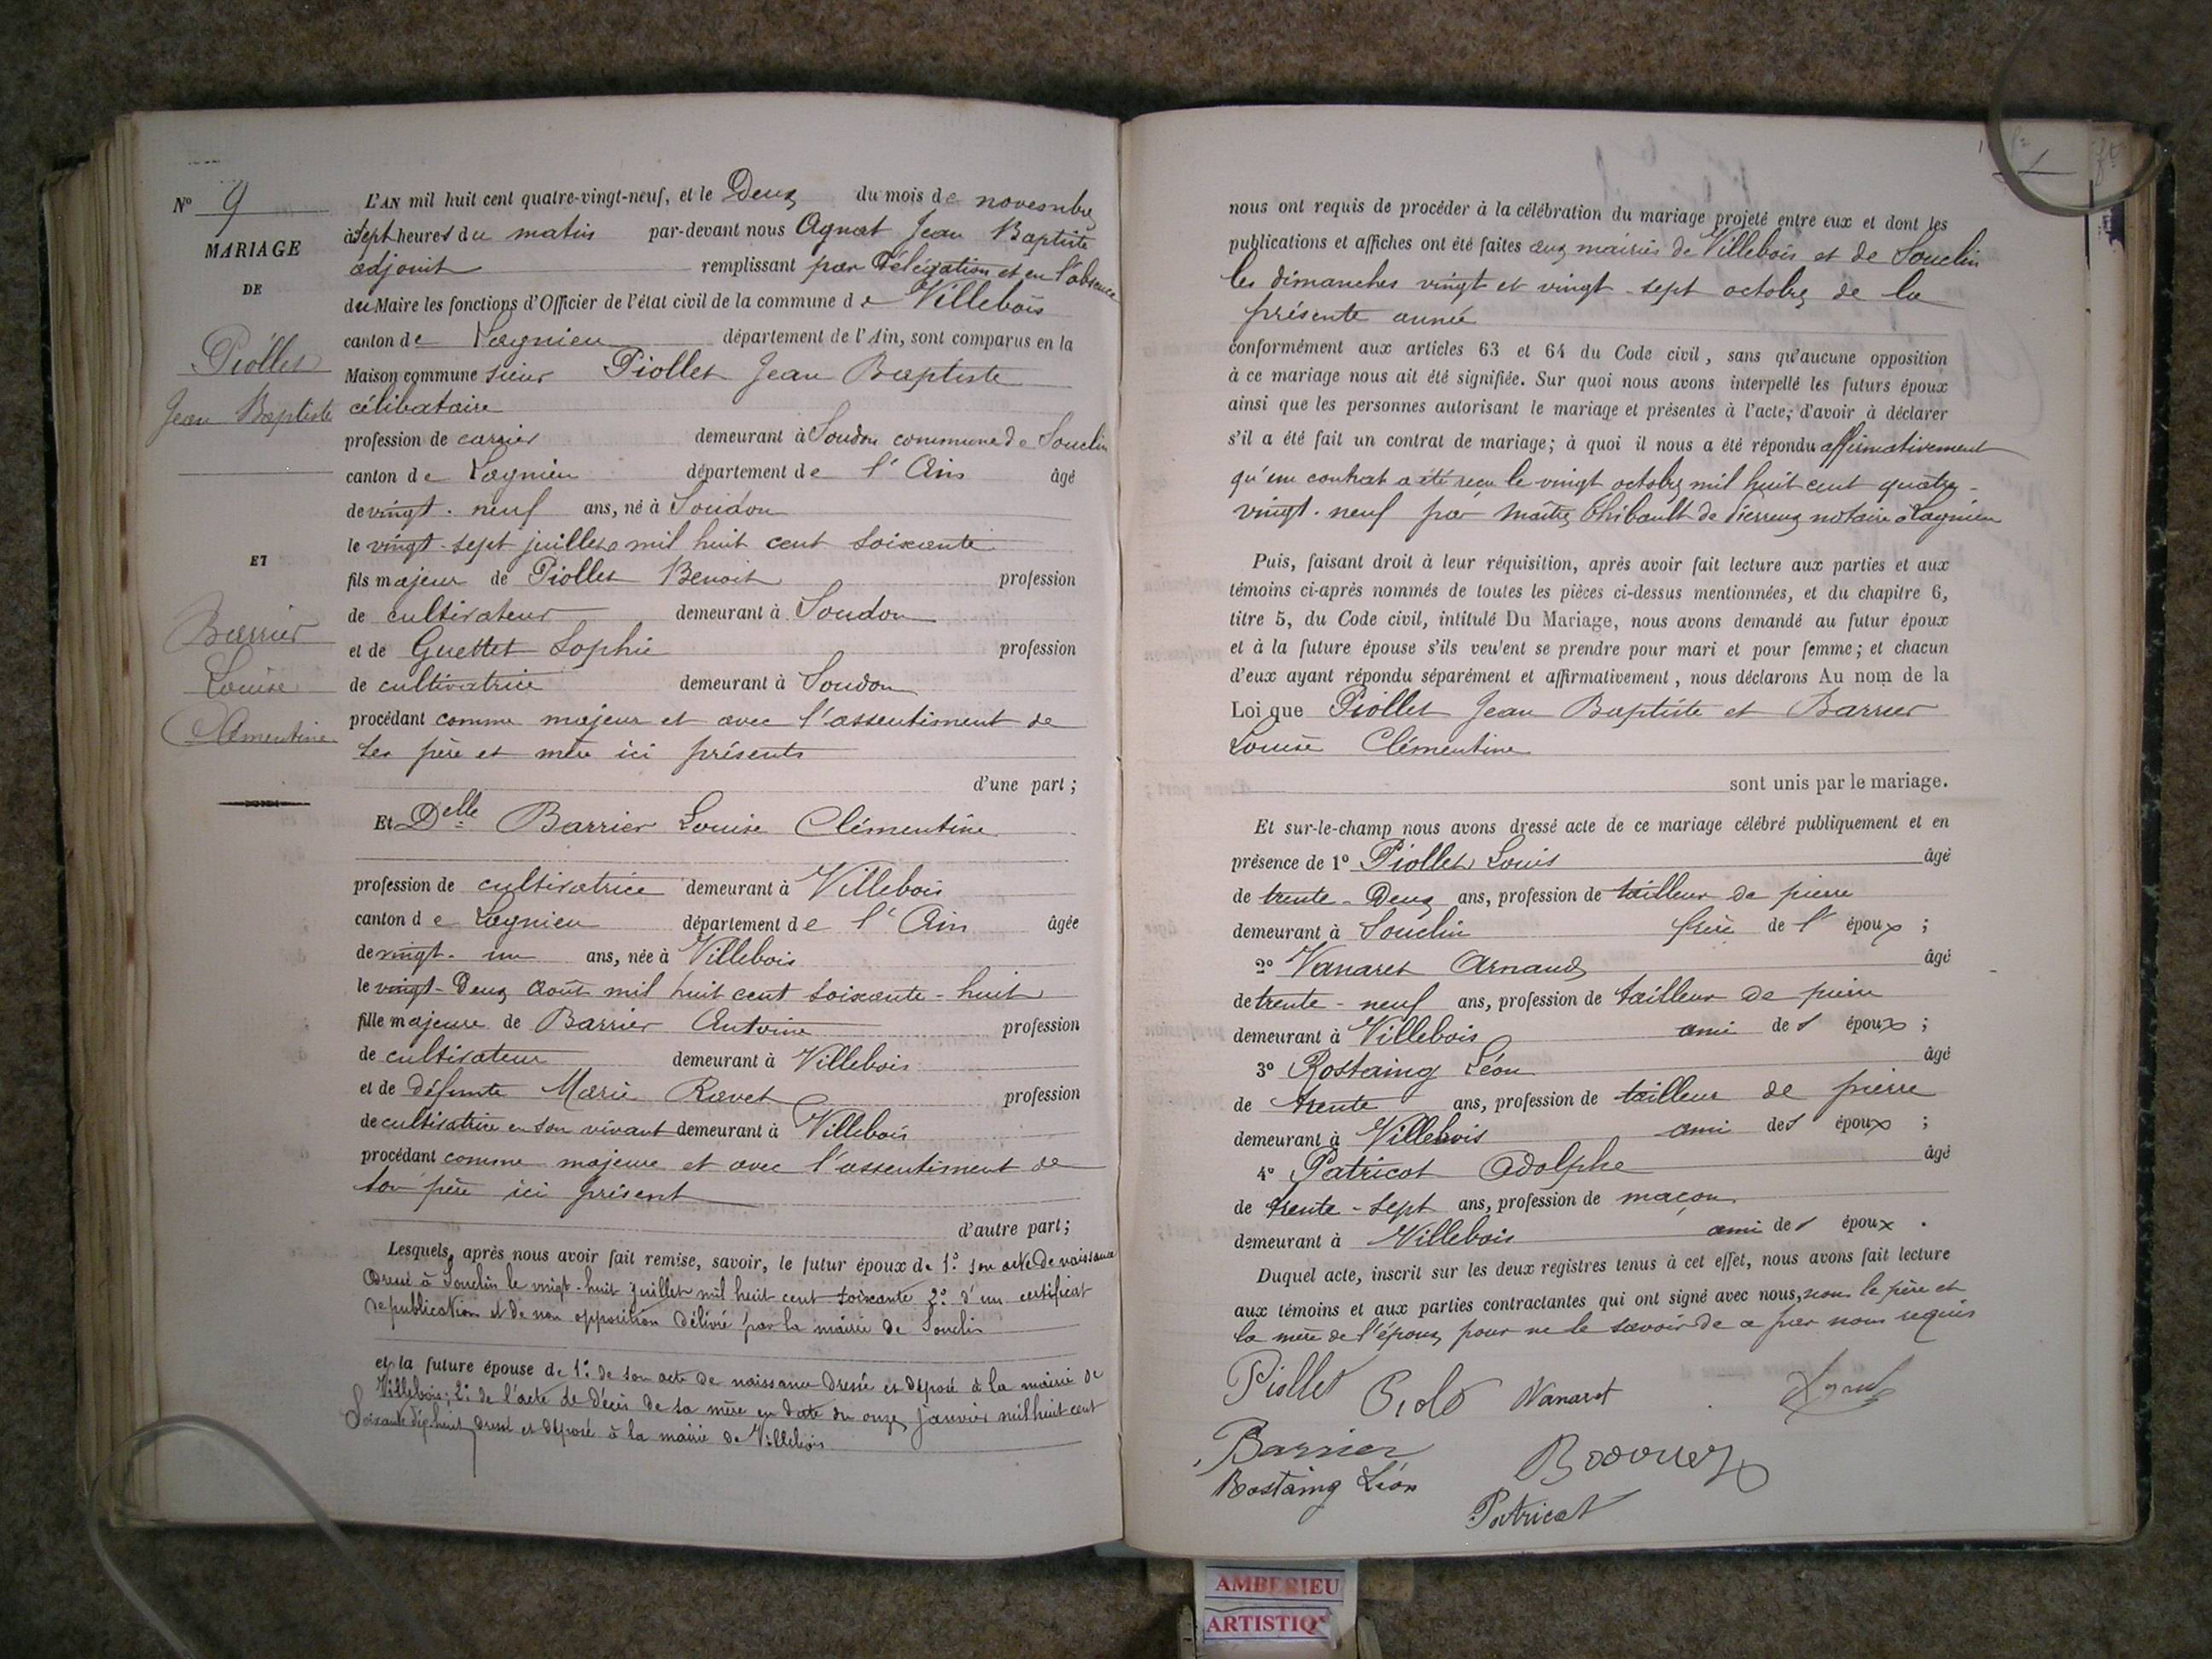 N° 9
MARIAGE
DE
Piollet
Jean Baptiste
ET
Barrier
Louise
Clémentine
L'AN mil huit cent quatre-vingt-neuf, et le Deux du mois de novembre
à sept heures du matin par-devant nous Agnat Jean Baptiste
adjoint remplissant par délégation et en l'absence
du Maire les fonctions d'Officier de l'état civil de la commune de Villebois
canton de Lagnieu département de l'Ain, sont comparus en la
Maison commune sieur Piollet Jean Baptiste
célibataire
profession de carrier demeurant à Soudon commune de Souclin
canton de Lagnieu département de l'Ain âgé
de vingt-neuf ans, né à Soudon
le vingt-sept juillet mil huit cent soixante
fils majeur de Piollet Benoit profession
de cultivateur demeurant à Soudon
et de Guettet Sophie profession
de cultivatrice demeurant à Soudon
procédant comme majeur et avec l'assentiment de
ses père et mère ici présents
d'une part;
Et Delle Barrier Louise Clémentine
profession de cultivatrice demeurant à Villebois
canton de Lagnieu département de l'Ain âgée
de vingt-un ans, née à Villebois
le vingt-Deux Août mil huit cent soixante-huit
fille majeure de Barrier Antoine profession
de cultivateur demeurant à Villebois
et de défunte Marie Ravet profession
de cultivatrice en son vivant demeurant à Villebois
procédant comme majeure et avec l'assentiment de
son père ici présent
d'autre part;
Lesquels, après nous avoir fait remise, savoir, le futur époux de 1° son acte de naissance
dressé à Souclin le vingt-huit juillet mil huit cent soixante 2° d'un certificat
de publication et de non opposition délivré par la mairie de Souclin
et la future épouse de 1° de son acte de naissance dressé et déposé à la mairie de
Villebois; 2° de l'acte de décès de sa mère en date du onze janvier mil huit cent
soixante dix huit dressé et déposé à la mairie de Villebois
nous ont requis de procéder à la célébration du mariage projeté entre eux et dont les
publications et affiches ont été faites aux mairies de Villebois et de Souclin
les dimanches vingt et vingt-sept octobre de la
présente année
conformément aux articles 63 et 64 du Code civil, sans qu'aucune opposition
à ce mariage nous ait été signifiée. Sur quoi nous avons interpellé les futurs époux
ainsi que les personnes autorisant le mariage et présentes à l'acte; d'avoir à déclarer
s'il a été fait un contrat de mariage; à quoi il nous a été répondu affirmativement
qu'un contrat a été reçu le vingt octobre mil huit cent quatre-
vingt-neuf par Maître Thibault de Pierreux notaire à Lagnieu
Puis, faisant droit à leur réquisition, après avoir fait lecture aux parties et aux
témoins ci-après nommés de toutes les pièces ci-dessus mentionnées, et du chapitre 6,
titre 5, du Code civil, intitulé Du Mariage, nous avons demandé au futur époux
et à la future épouse s'ils veulent se prendre pour mari et pour femme; et chacun
d'eux ayant répondu séparément et affirmativement, nous déclarons Au nom de la
Loi que Piollet Jean Baptiste et Barrier
Louise Clémentine
sont unis par le mariage.
Et sur-le-champ nous avons dressé acte de ce mariage célébré publiquement et en
présence de 1° Piollet Louis âgé
de trente-Deux ans, profession de tailleur de pierre
demeurant à Souclin frère de l'époux;
2° Vanaret Arnaud âgé
de trente-neuf ans, profession de tailleur de pierre
demeurant à Villebois ami des époux;
3° Rostaing Léon âgé
de trente ans, profession de tailleur de pierre
demeurant à Villebois ami des époux;
4° Patricot Adolphe âgé
de trente-sept ans, profession de maçon
demeurant à Villebois ami des époux.
Duquel acte, inscrit sur les deux registres tenus à cet effet, nous avons fait lecture
aux témoins et aux parties contractantes qui ont signé avec nous, non le père et
la mère de l'époux pour ne le savoir de ce par nous requis
Piollet Vanaret
Barrier
Rostaing Léon
Patricot
AMBERIEU
ARTISTIQ